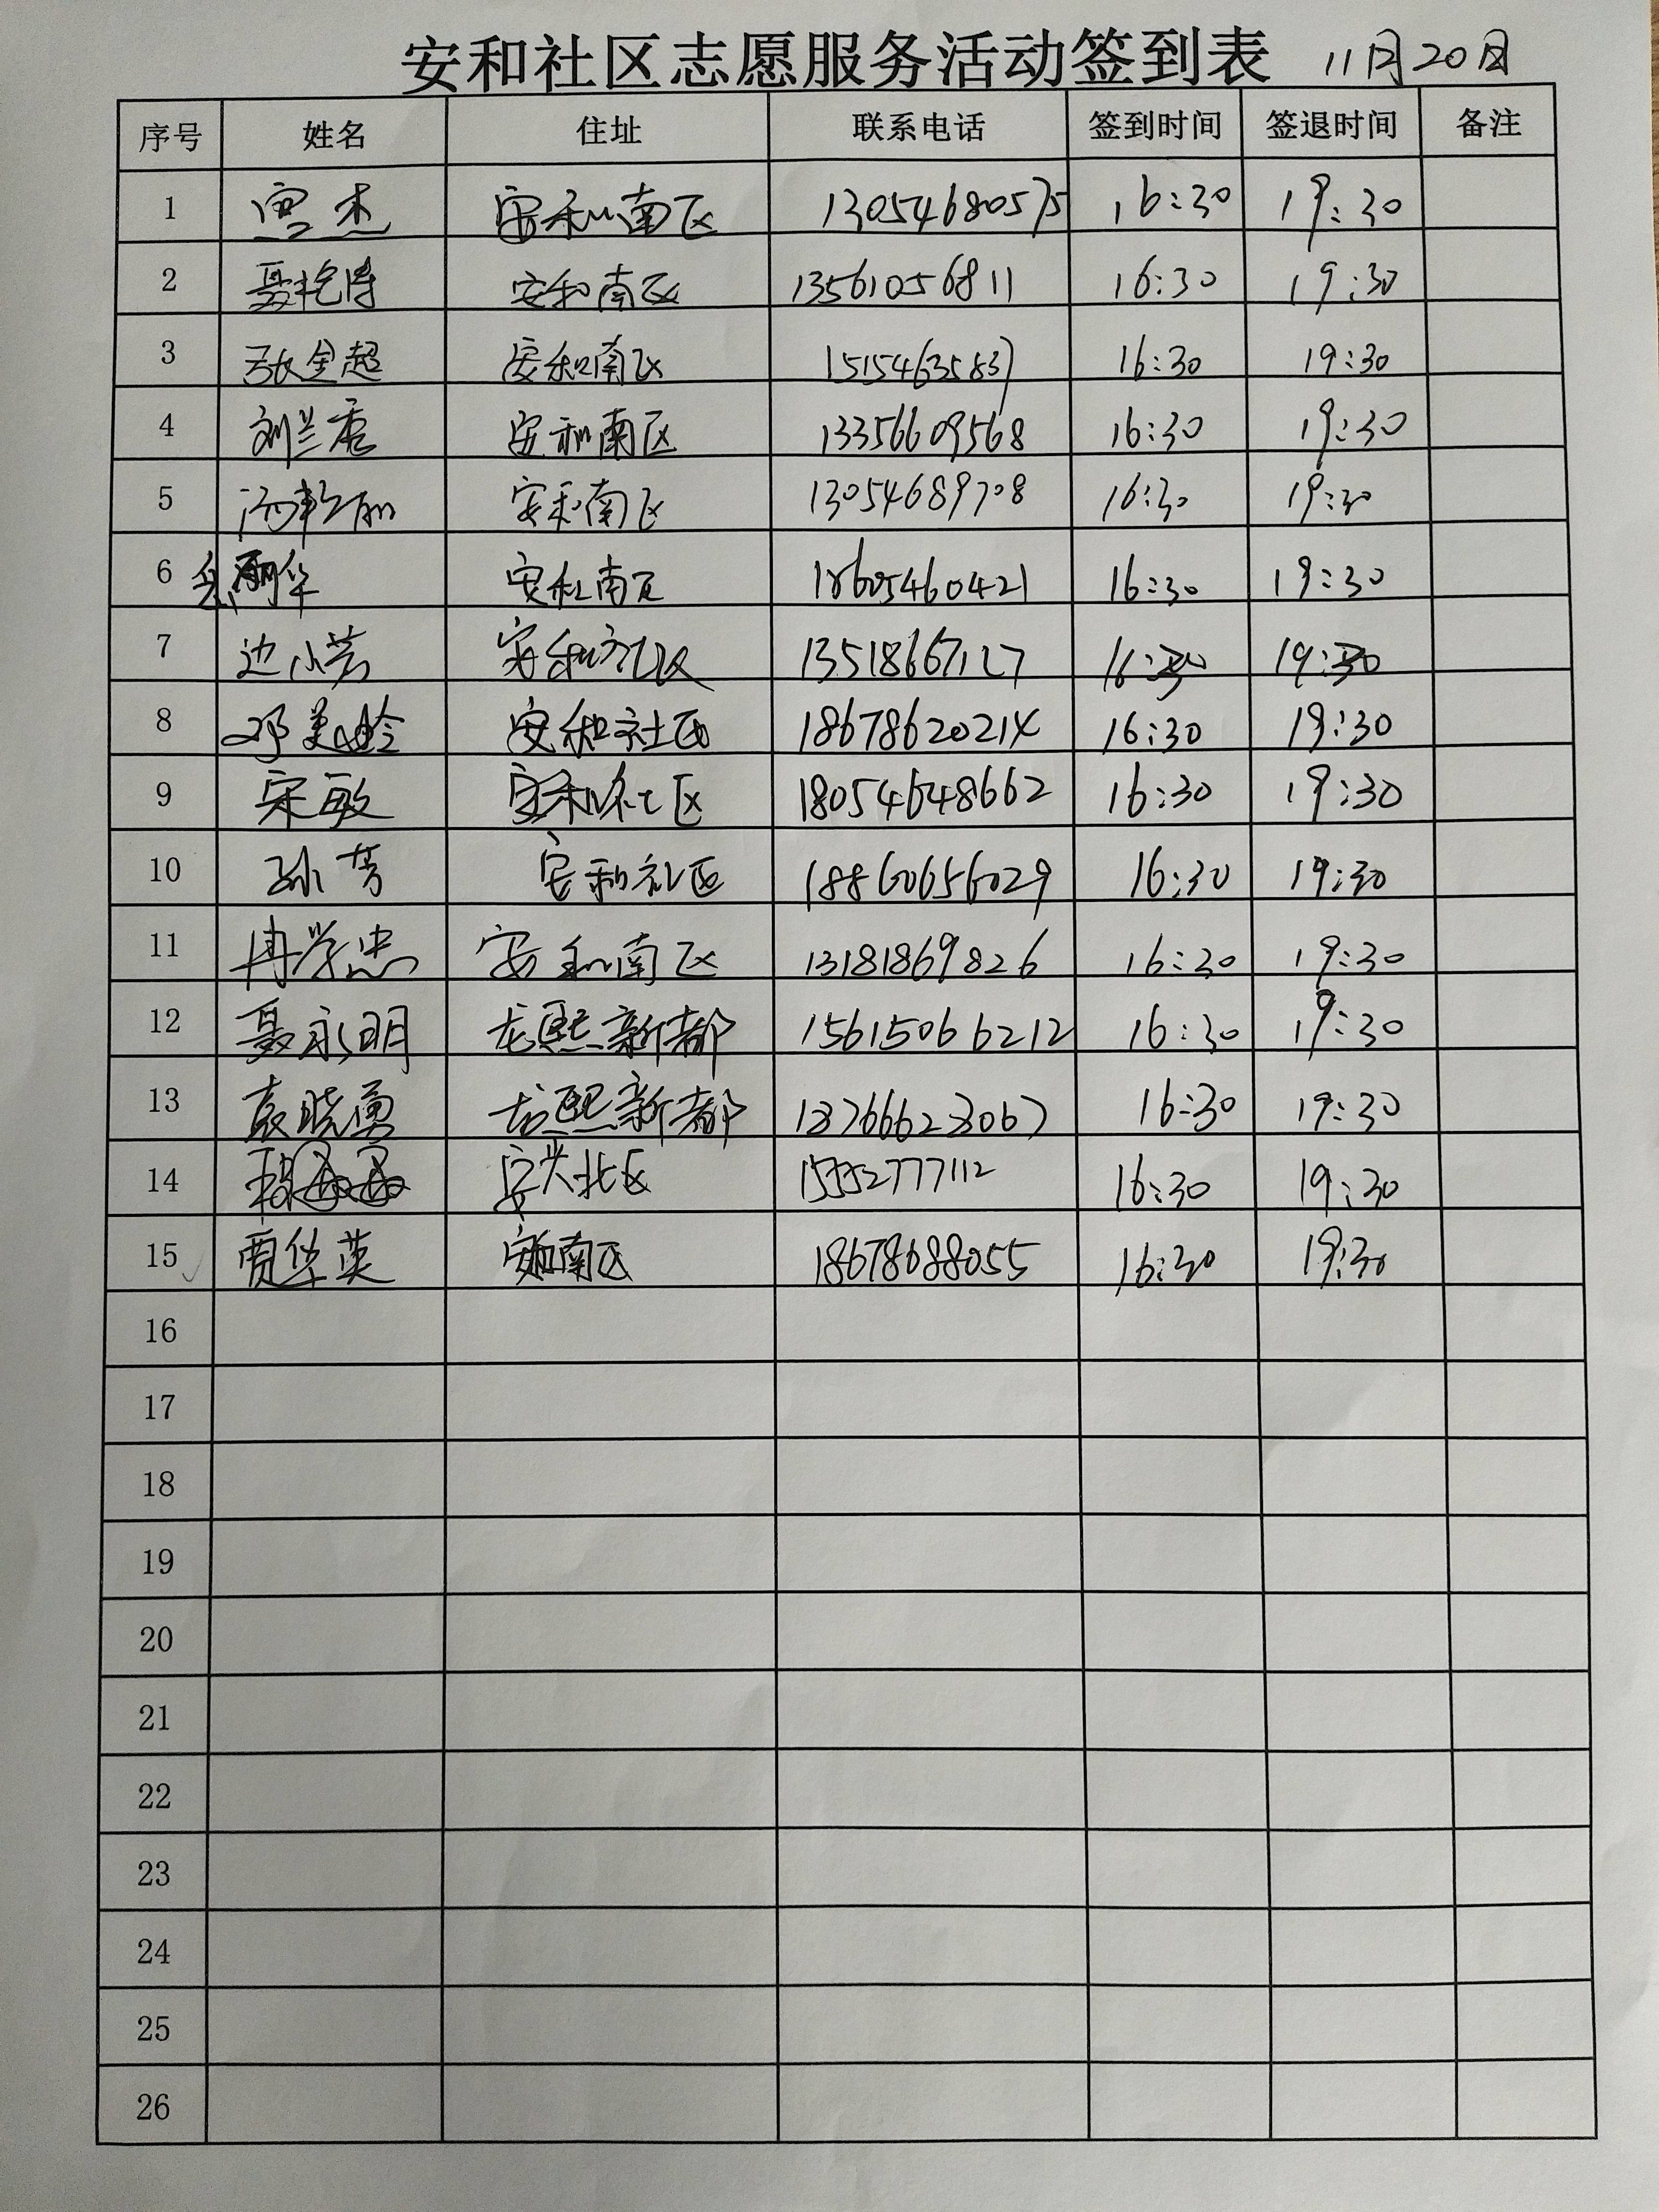 安和社区志愿服务活动签到表 11月20日
序号 姓名 住址 联系电话 签到时间 签退时间 备注
1 杰 安和南区 13054680575 16:30 19:30
2 聂艳涛 安和南区 13561056811 16:30 19:30
3 张金超 安和南区 15154635837 16:30 19:30
4 刘兰香 安和南区 13356609568 16:30 19:30
5 安和南区 13054689708 16:30 19:30
6 丽华 安和南区 18605460421 16:30 19:30
7 边小芳 安和社区 13518667127 16:30 19:30
8 邓美玲 安和社区 18678620214 16:30 19:30
9 宋敏 安和社区 18054648662 16:30 19:30
10 孙芳 安和社区 18860656029 16:30 19:30
11 冉学忠 安和南区 13181869826 16:30 19:30
12 聂永明 龙熙新都 15615066212 16:30 19:30
13 聂晓勇 龙熙新都 16:30 19:30
14 安兴北区 16:30 19:30
15 贾华英 安和南区 18678688055 16:30 19:30
16
17
18
19
20
21
22
23
24
25
26